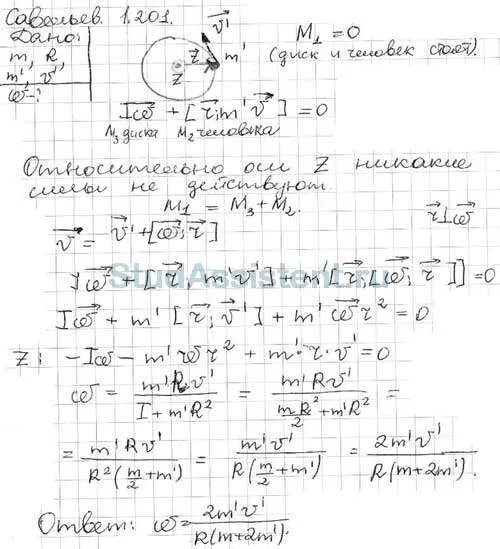 Савельев. 1.201.
Дано:
m, R,
m', v'
ω-?
v⃗'
m'
r⃗
Z
M₁ = 0
(диск и человек стоят).
Iω⃗ + [r⃗; m'v⃗] = 0
M₃ диска M₂ человека
Относительно оси Z никакие
силы не действуют.
M₁ = M₃ + M₂.
r⃗⊥ω⃗
v⃗ = v⃗' + [ω⃗; r⃗]
Iω⃗ + [r⃗, m'v⃗'] + m'[r⃗; [ω⃗; r⃗]] = 0
StudAssistent.ru
Iω⃗ + m'[r⃗; v⃗'] + m'ω⃗r² = 0
Z: -Iω - m'ωr² + m'·r·v' = 0
ω = m'Rv' / (I + m'R²) = m'Rv' / (mR²/2 + m'R²) =
= m'Rv' / (R²(m/2 + m')) = m'v' / (R(m/2 + m')) = 2m'v' / (R(m + 2m')).
Ответ: ω = 2m'v' / (R(m + 2m')).